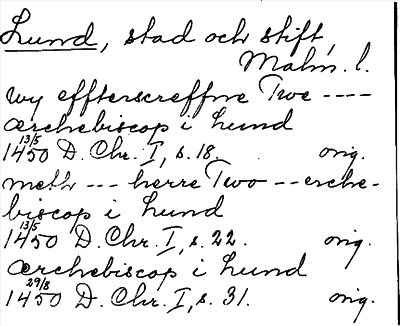 Lund, stad och stift,
Malm. l.
wy effterscreffne Twe ----
ærchebiscop i lund
1450 13/5 D. Chr. I, s. 18. orig.
meth --- herre Two -- erche-
biscop i lund
1450 13/5 D. Chr. I, s. 22. orig.
ærchebiscop i lund
1450 29/8 D. Chr. I, s. 31. orig.